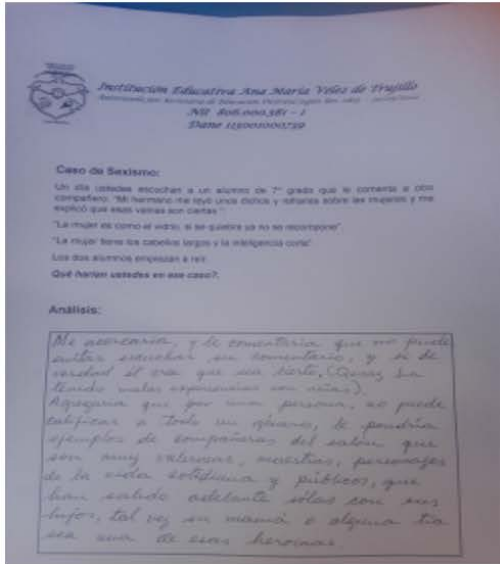 Institución Educativa Ana María Vélez de Trujillo
Nit 806.000.381 - 1
Dane 113001000739
Caso de Sexismo:
Un día ustedes escuchan a un alumno de 7° grado que le comenta a otro
compañero: "Mi hermano me leyó unos dichos y refranes sobre las mujeres y me
explicó que esas vainas son ciertas."
"La mujer es como el vidrio, si se quiebra ya no se recompone".
"La mujer tiene los cabellos largos y la inteligencia corta"
Los dos alumnos empiezan a reír.
Qué harían ustedes en ese caso?.
Análisis:
Me acercaría, y le comentaría que no pude
evitar escuchar su comentario, y si de
verdad él cree que sea cierto, (Quizás ha
tenido malas experiencias con niñas).
Agregaría que por una persona, no puede
calificar a todo un género, le pondría
ejemplos de compañeras del salón que
son muy valiosas, maestras, personajes
de la vida cotidiana y públicos, que
han salido adelante sólas con sus
hijos, tal vez su mamá o alguna tía
sea una de esas heroínas.